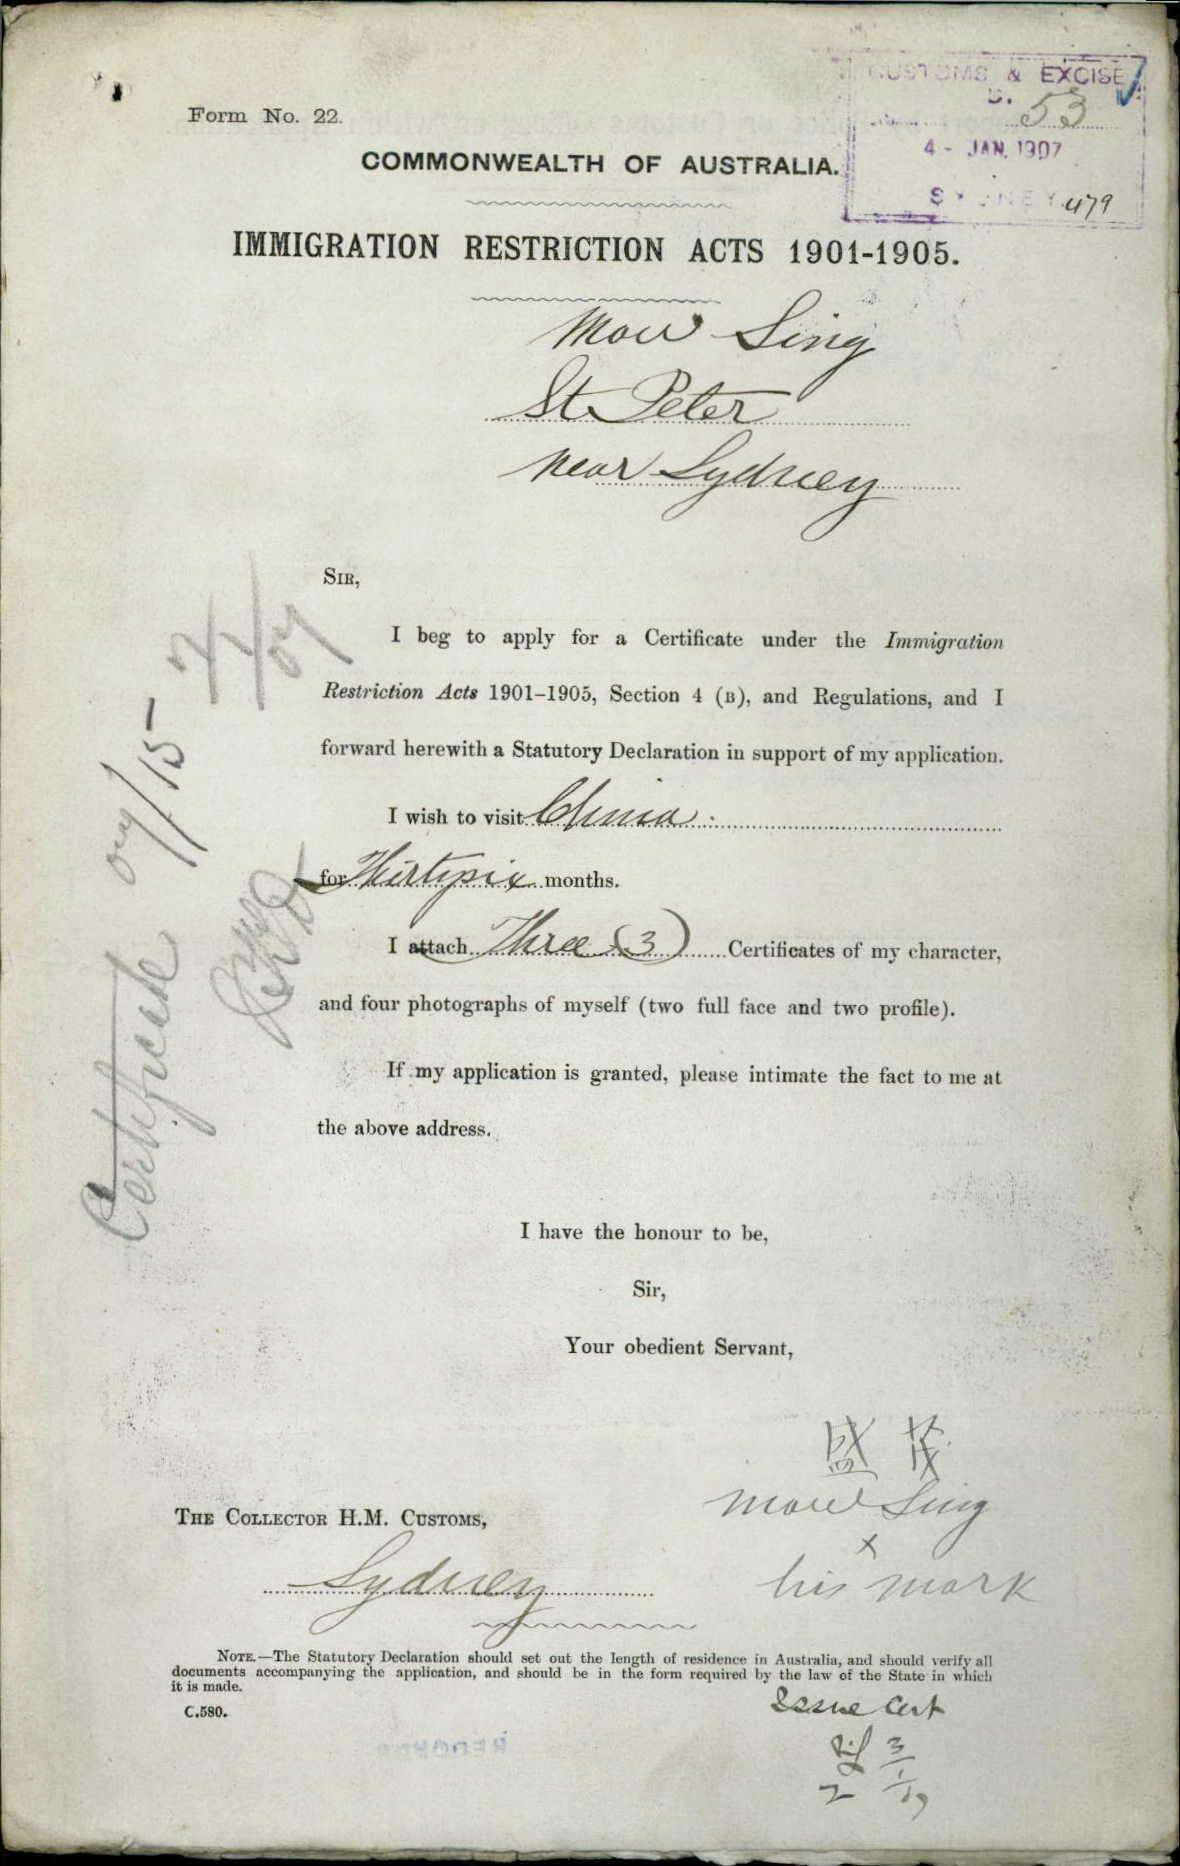 CUSTOMS & EXCISE
53
4 - JAN. 1907
SYDNEY 479
Form No. 22.
COMMONWEALTH OF AUSTRALIA.
IMMIGRATION RESTRICTION ACTS 1901-1905.
Mow Sing
St Peter
near Sydney
SIR,
I beg to apply for a Certificate under the Immigration
Restriction Acts 1901–1905, Section 4 (B), and Regulations, and I
forward herewith a Statutory Declaration in support of my application.
I wish to visit China
for Thirtysix months.
I attach Three (3) Certificates of my character,
and four photographs of myself (two full face and two profile).
If my application is granted, please intimate the fact to me at
the above address.
I have the honour to be,
Sir,
Your obedient Servant,
盛 茂
Mow Sing
x
his mark
THE COLLECTOR H.M. CUSTOMS,
Sydney
NOTE.—The Statutory Declaration should set out the length of residence in Australia, and should verify all
documents accompanying the application, and should be in the form required by the law of the State in which
it is made.
C.580.
Issue Cert
Certificate 07/15